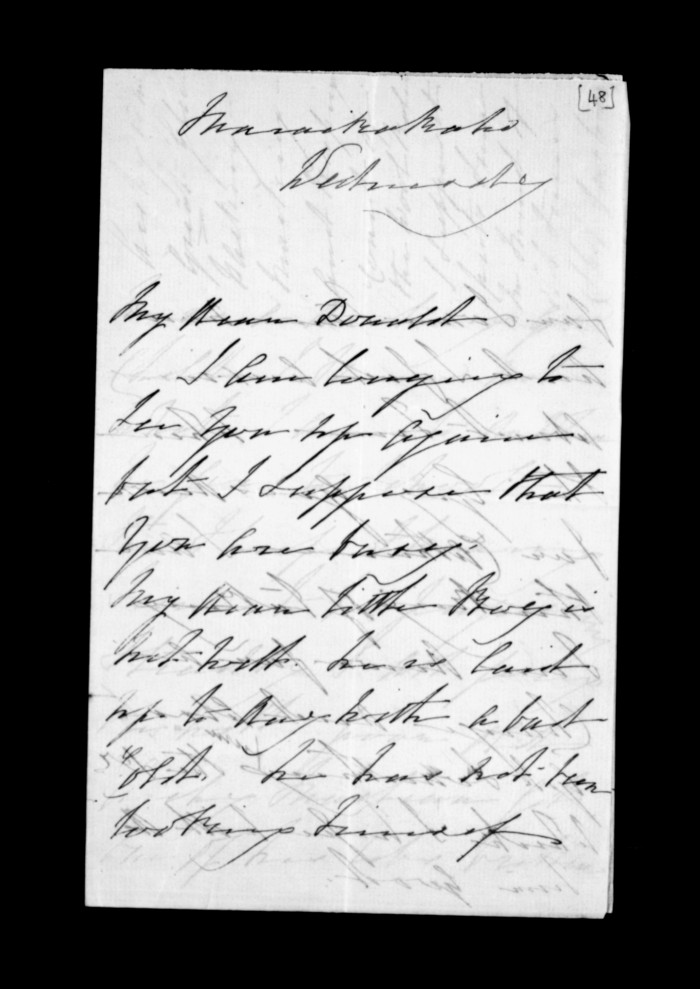 [48]
Maraekakaho
Wednesday
My dear Donald
I am longing to
see you up again
but I suppose that
you are busy.
My dear little Boy is
not well. he is laid
up to day with a bad
cold. he has not been
looking himself